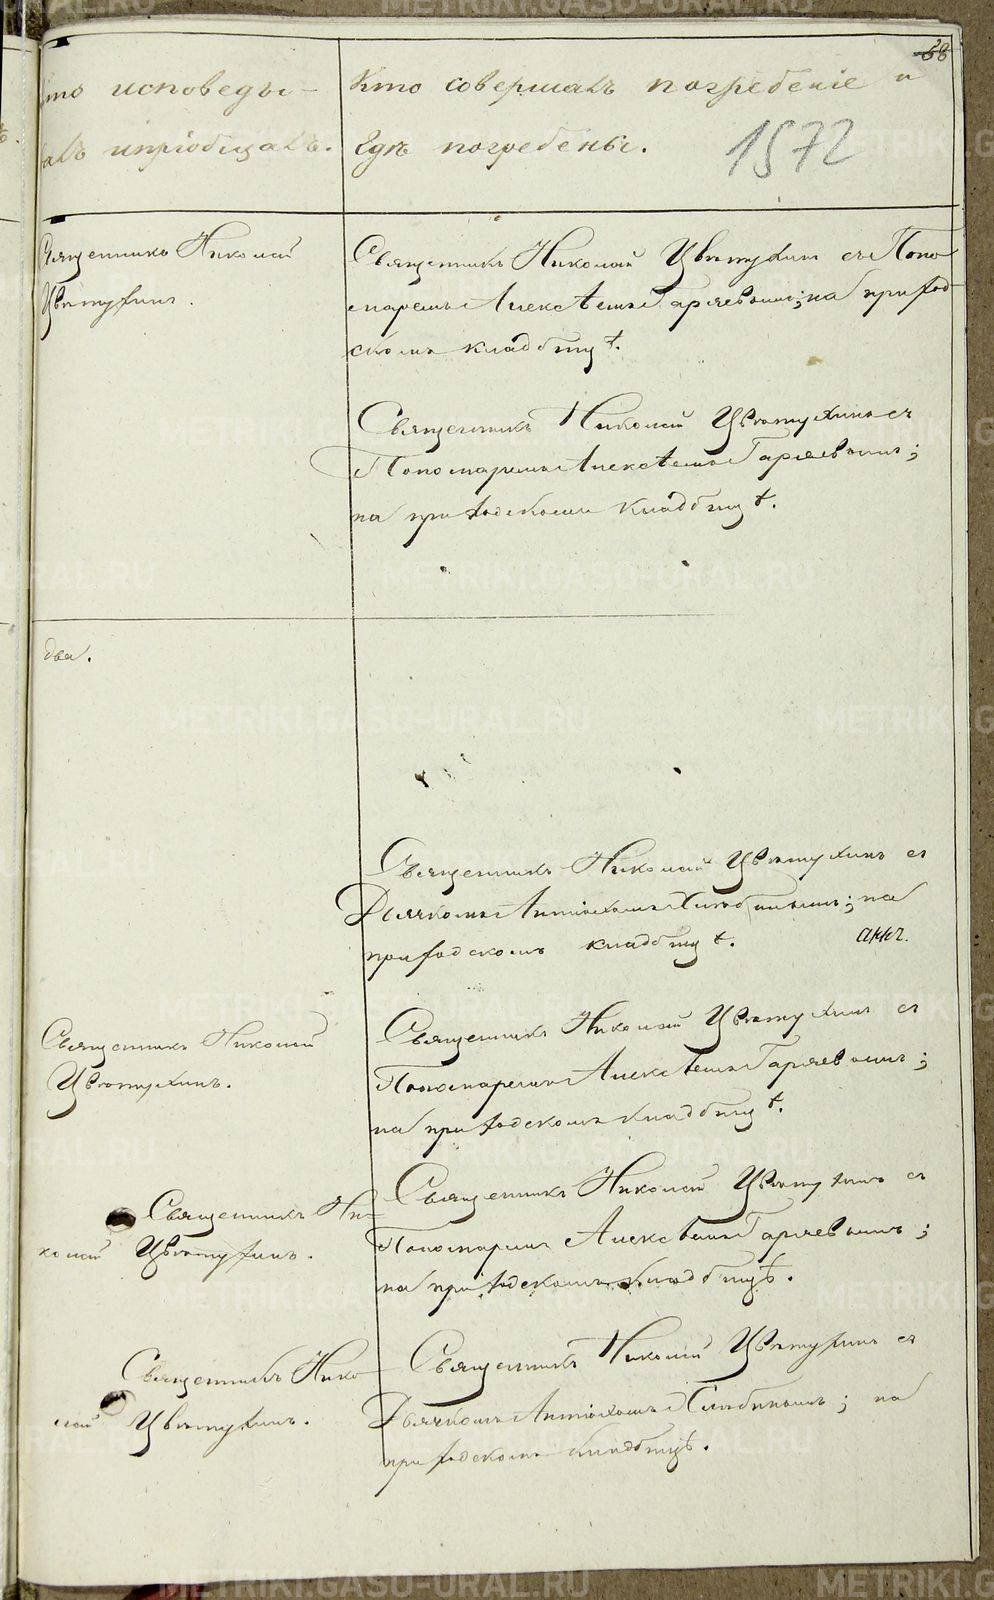 58
Кто исповеды-
валъ и пріобщалъ.
Кто совершалъ погребеніе и
где погребены.
1572
Священникъ Николай
Цвѣтухинъ.
Священникъ Николай Цвѣтухинъ съ Поно
маремъ Алексѣемъ Гаряевымъ; на приход
скомъ кладбищѣ.
Священникъ Николай Цвѣтухинъ съ
Пономаремъ Алексѣемъ Гаряевымъ;
на приходскомъ кладбищѣ.
два.
Священникъ Николай Цвѣтухинъ съ
Дьячкомъ Антіохомъ Хлюбинымъ; на
приходскомъ кладбищѣ.
Священникъ Николай
Цвѣтухинъ.
Священникъ Николай Цвѣтухинъ съ
Пономаремъ Алексѣемъ Гаряевымъ;
на приходскомъ кладбищѣ.
Священникъ Ни-
колай Цвѣтухинъ.
Священникъ Николай Цвѣтухинъ съ
Пономаремъ Алексѣемъ Гаряевымъ;
на приходскомъ кладбищѣ.
Священникъ Нико-
лай Цвѣтухинъ.
Священникъ Николай Цвѣтухинъ съ
Дьячкомъ Антіохомъ Хлюбинымъ; на
приходскомъ кладбищѣ.
METRIKI.GASO-URAL.RU